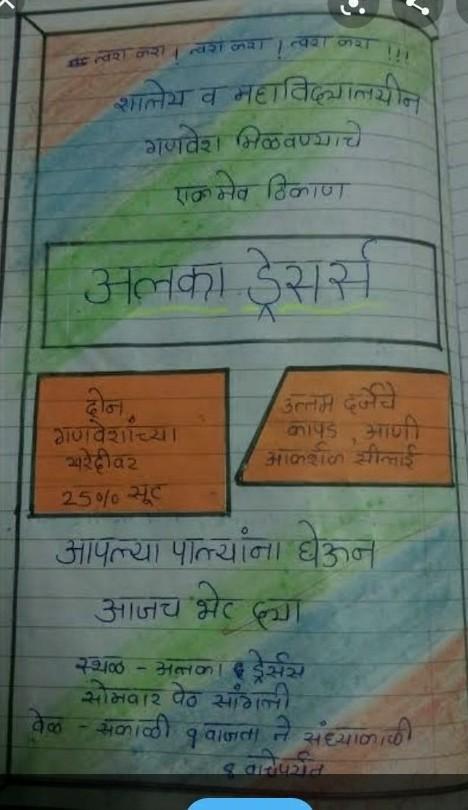 त्वरा करा ! त्वरा करा ! त्वरा करा !!!
शालेय व महाविद्यालयीन
गणवेश मिळवण्याचे
एकमेव ठिकाण
अलका ड्रेसर्स
दोन
गणवेशांच्या
खरेदीवर
25% सूट
उत्तम दर्जेचे
कापड , आणी
आकर्शक सीलाई
आपल्या पाल्यांना घेऊन
आजच भेट द्या
स्थळ - अलका ड्रेर्सस
सोमवार पेठ सांगली
वेळ - सकाळी ९ वाजता ते संध्याकाळी
८ वाचेपर्यंत